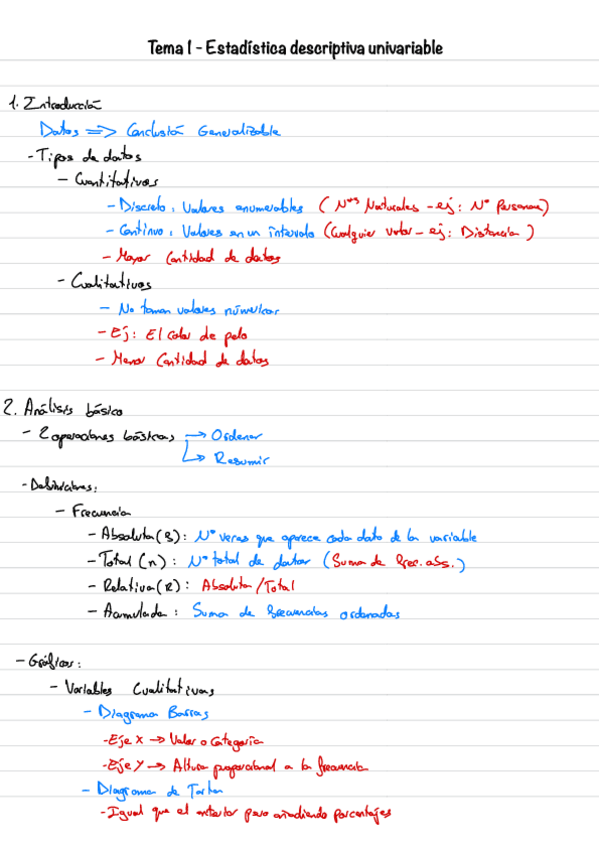 Tema 1 - Estadística descriptiva univariable
1. Introducción
Datos => Conclusión Generalizable
- Tipos de datos
- Cuantitativos
- Discreto: Valores enumerables (Nos Naturales - ej: Nº Personas)
- Continuo: Valores en un intervalo (Cualquier valor - ej: Distancia)
- Mayor Cantidad de datos
- Cualitativos
- No toman valores númericos
- Ej: El color de pelo
- Menor Cantidad de datos
2. Análisis básico
- 2 operaciones básicas → Ordenar
↳ Resumir
- Definiciones:
- Frecuencia
- Absoluta (f): Nº veces que aparece cada dato de la variable
- Total (n): Nº total de datos (Suma de frec. abs.)
- Relativa (f): Absoluta / Total
- Acumulada: Suma de frecuencias ordenadas
- Gráficos:
- Variables Cualitativas
- Diagrama Barras
- Eje X → Valor o Categoría
- Eje Y → Altura proporcional a la frecuencia
- Diagrama de Tarta
- Igual que el anterior pero añadiendo porcentajes